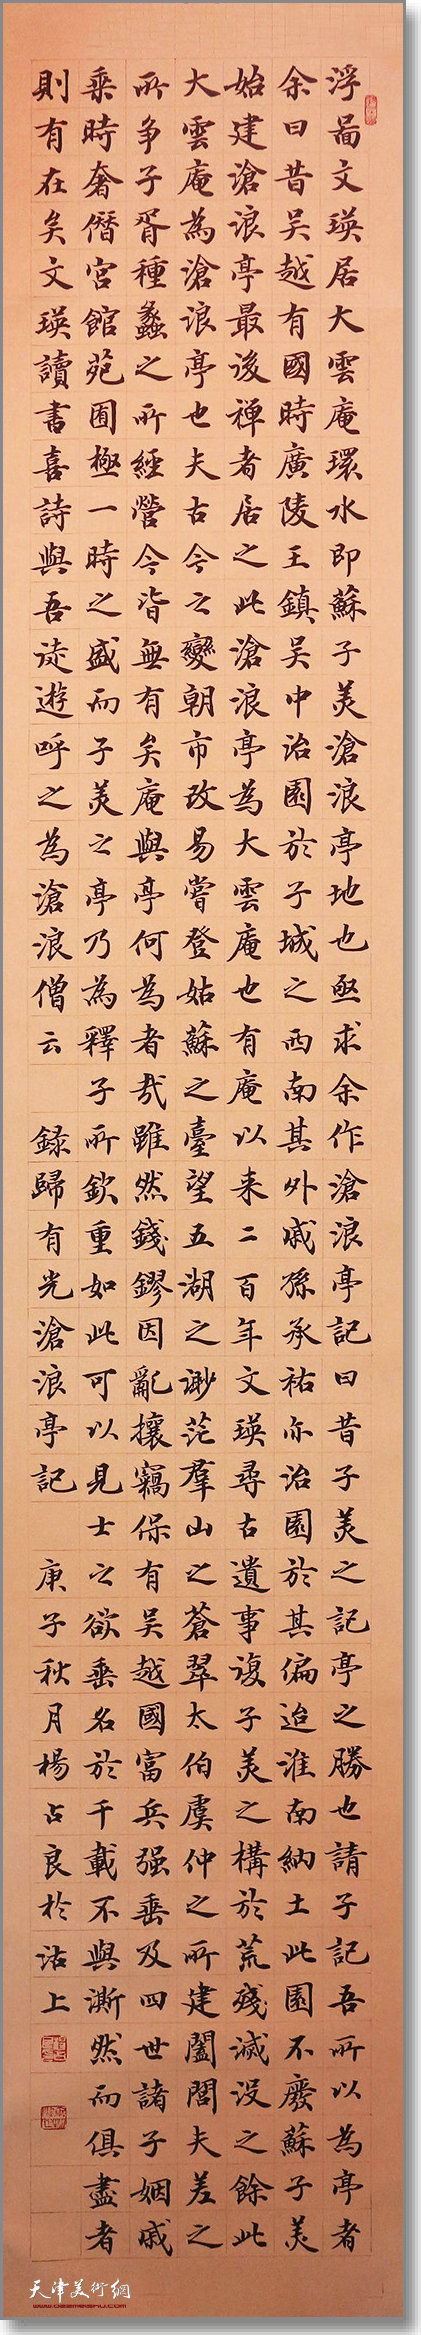 浮啚文瑛居大雲庵環水即蘇子美滄浪亭地也亟求余作滄浪亭記曰昔子美之記亭之勝也請子記吾所以為亭者
余曰昔吴越有國時廣陵王鎮吴中治園於子城之西南其外戚孫承祐亦治園於其偏迨淮南納土此園不廢蘇子美
始建滄浪亭最後禅者居之此滄浪亭為大雲庵也有庵以来二百年文瑛尋古遺事復子美之構於荒殘滅没之餘此
大雲庵為滄浪亭也夫古今之變朝市改易嘗登姑蘇之臺望五湖之渺茫羣山之蒼翠太伯虞仲之所建闔閭夫差之
所争子胥種蠡之所經營今皆無有矣庵與亭何為者哉雖然錢鏐因亂攘竊保有吴越國富兵强垂及四世諸子姻戚
乘時奢僭宫館苑囿極一時之盛而子美之亭乃為釋子所欽重如此可以見士之欲垂名於千載不與澌然而俱盡者
則有在矣文瑛讀書喜詩與吾徒遊呼之為滄浪僧云 録歸有光滄浪亭記 庚子秋月楊占良於沽上
天津美術網